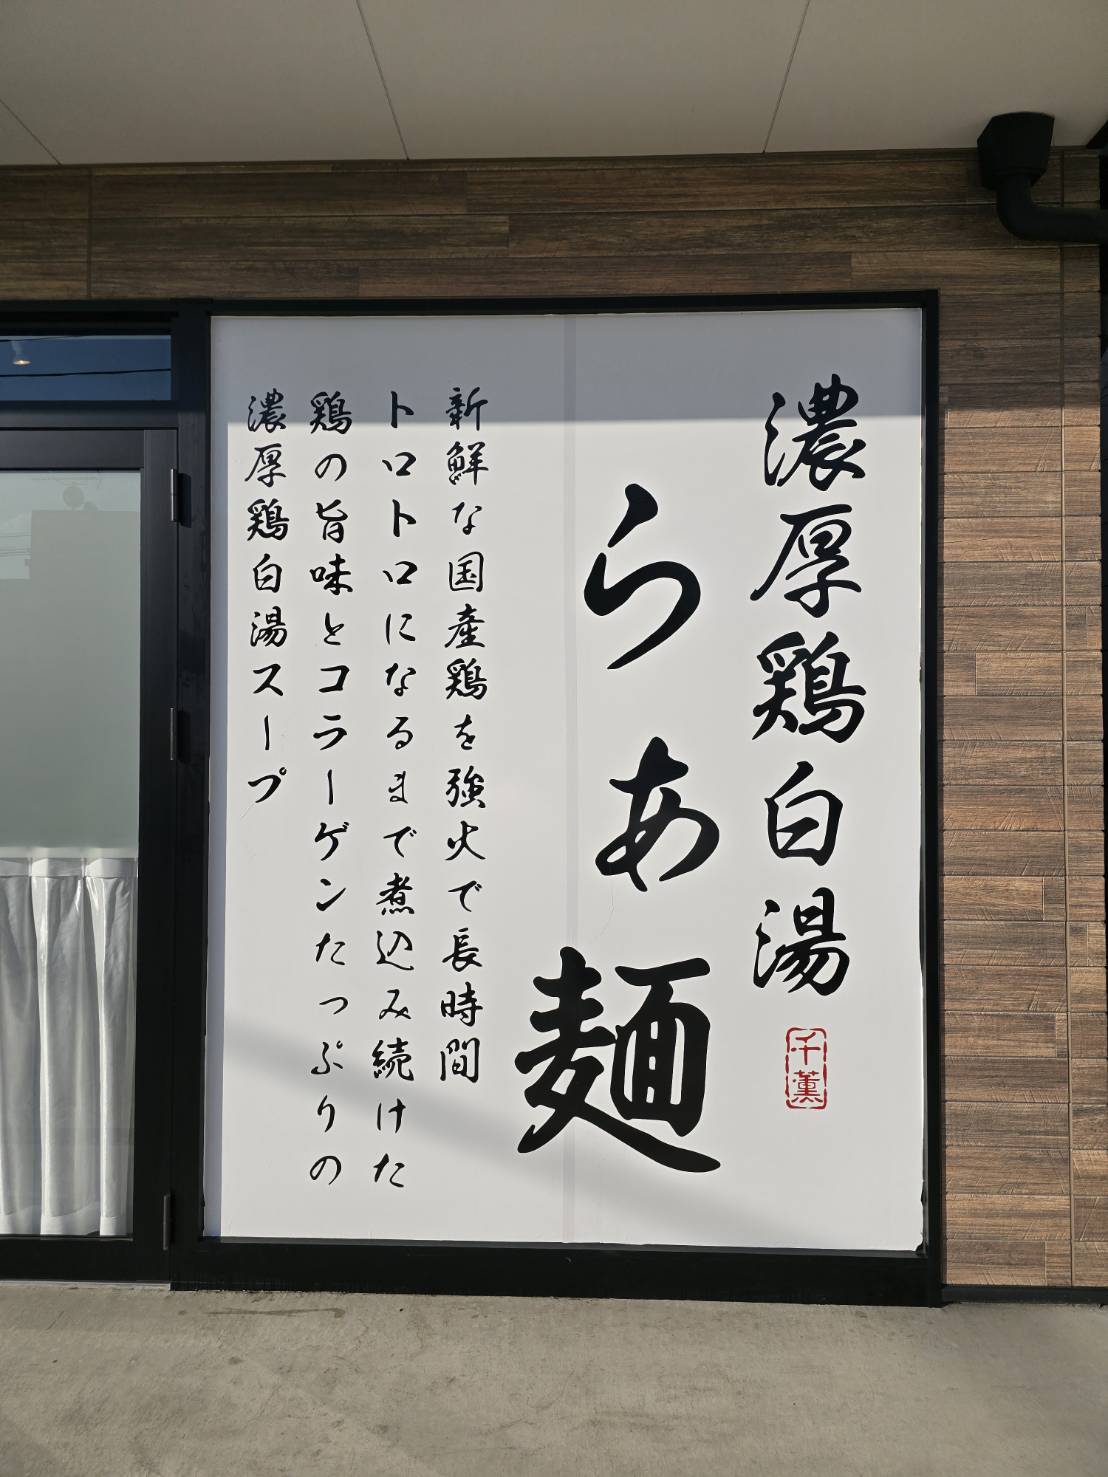 濃厚鶏白湯
千薫
らぁ麺
新鮮な国産鶏を強火で長時間
トロトロになるまで煮込み続けた
鶏の旨味とコラーゲンたっぷりの
濃厚鶏白湯スープ